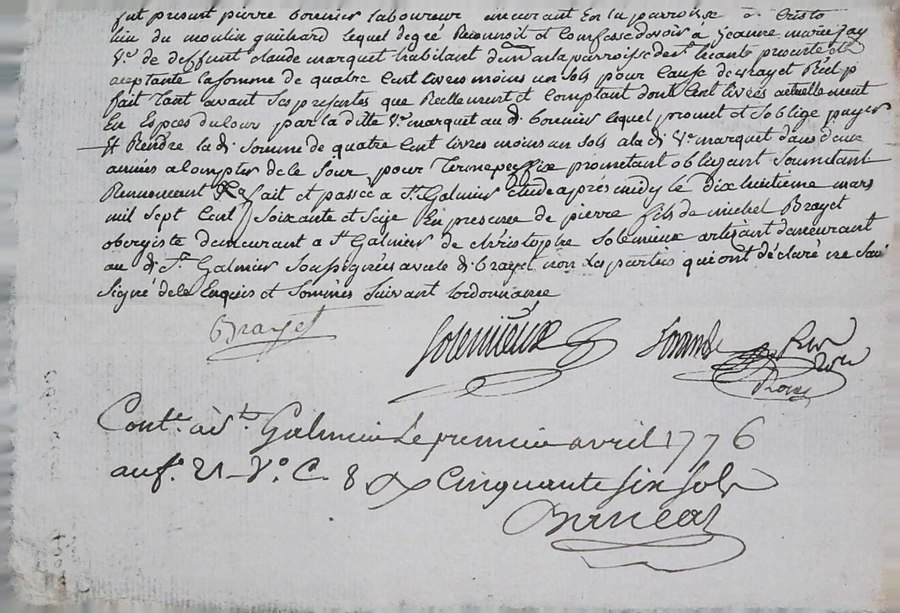 fut present pierre bonnier laboureur demeurant En la parroisse
lieu du moulin guichard lequel degré Reconnoit et Confesse devoir a jeanne marie fay
Ve de deffunt claude marquet habitant parroisse de st presente et
aceptante la somme de quatre Cent livres moins un sols pour Cause de vray et Réel p
fait Tant avant Ses presentes que Reellement et Comptant dont Cent livres actuellement
En Espces du Cour par la ditte Ve marquet au dt bonnier lequel promet et Soblige payer
Et Rendre la de Somme de quatre Cent livres moins un Sols a la de Ve marquet dans deux
années a Compter de Ce jour pour Terme preffix promettant obligeant Soumettant
Renoncent fait et passé a St Galmier étude après midy le dix huitieme mars
mil sept Cent Soixante et Seize En presence de pierre fils de michel Brayet
obergiste demeurant a St Galmier de christophe Solemieux artisant demeurant
au dt St Galmier Soussignées avec le dt brayet non Les parties qui ont déclaré ne Sav
Signé de Ce Enquis et Sommés Suivant lordonnance
Brayet
Solemieux
Conte. a St. Galmier Le premier avril 1776
au fo. 21 Vo. C. 8 Cinquante six sols